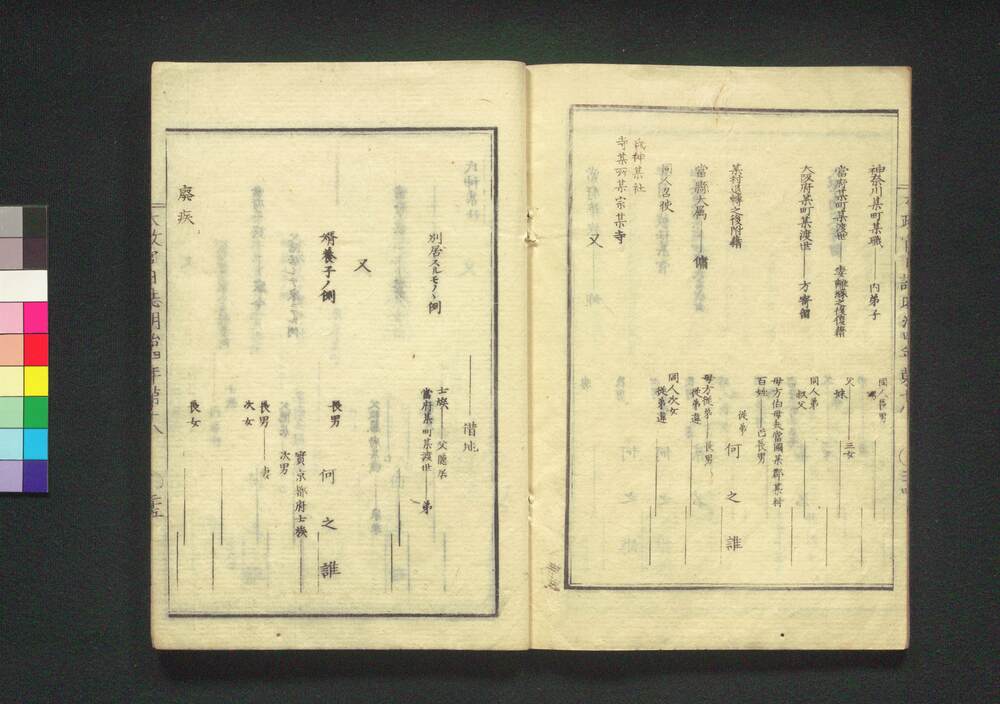 神奈川某町某職 内弟子
同人長男
當府某町某渡世 妻離縁之後復籍
父 妹 三女
大阪府某町某渡世 方寄留
同人弟 叔父
母方伯母夫當國某郡某村
百姓 己長男
某村退轉之後附籍
從弟
何之誰
當縣大属 傭
母方從弟 長男
從弟違
同人召使
同人次女
從弟違
氏神某社
寺某所某宗某寺
又
借地
別居スルモノヽ例
士族 父隱居
當府某町某渡世 弟
又
壻養子ノ例
何之誰
長男
實京都府士族
次男
長男 妻
次女
廢疾
長女
太政官日誌明治四年第十八